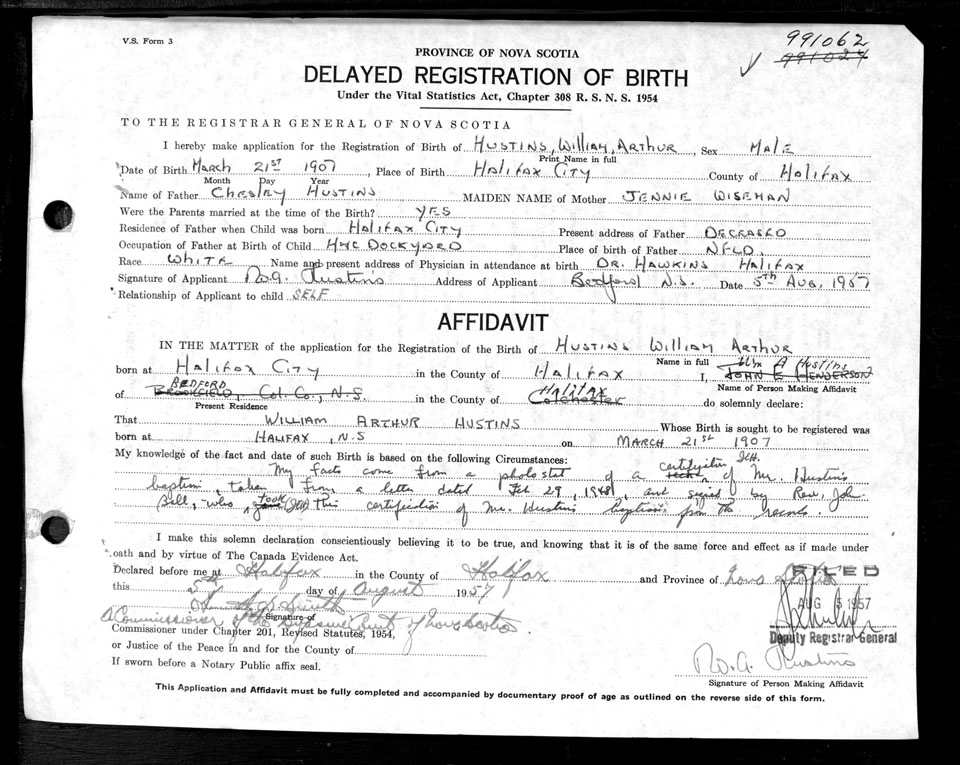 V.S. Form 3
991062
991024
PROVINCE OF NOVA SCOTIA
DELAYED REGISTRATION OF BIRTH
Under the Vital Statistics Act, Chapter 308 R. S. N. S. 1954
TO THE REGISTRAR GENERAL OF NOVA SCOTIA
I hereby make application for the Registration of Birth of HUSTINS, WILLIAM, ARTHUR, Sex MALE
Print Name in full
Date of Birth MARCH 21ST 1907, Place of Birth HALIFAX CITY County of HALIFAX
Month Day Year
Name of Father CHESLEY HUSTINS MAIDEN NAME of Mother JENNIE WISEMAN
Were the Parents married at the time of the Birth? YES
Residence of Father when Child was born HALIFAX CITY Present address of Father DECEASED
Occupation of Father at Birth of Child HMC DOCKYARD Place of birth of Father NFLD.
Race WHITE Name and present address of Physician in attendance at birth DR. HAWKINS HALIFAX
Signature of Applicant W.A. Hustins Address of Applicant Bedford N.S. Date 5th AUG, 1957
Relationship of Applicant to child SELF
AFFIDAVIT
IN THE MATTER of the application for the Registration of the Birth of HUSTINS WILLIAM ARTHUR
Name in full Wm A Hustins
born at HALIFAX CITY in the County of HALIFAX I, JOHN E HENDERSON
Name of Person Making Affidavit
BEDFORD Halifax
of BROOKFIELD, Col. Co., N.S. in the County of Colchester do solemnly declare:
Present Residence
That WILLIAM ARTHUR HUSTINS Whose Birth is sought to be registered was
born at HALIFAX, N.S on MARCH 21ST 1907
My knowledge of the fact and date of such Birth is based on the following Circumstances:
My facts come from a photostat of a certification of Mr. Hustins
baptism, taken from a letter dated Feb 29, 1948, and signed by Rev. John
Bell, who took this certification of Mr. Hustins baptism from the records.
I make this solemn declaration conscientiously believing it to be true, and knowing that it is of the same force and effect as if made under
oath and by virtue of The Canada Evidence Act.
Declared before me at Halifax in the County of Halifax and Province of Nova Scotia
this 5th day of August 1957
FILED
AUG 5 1957
Deputy Registrar General
Signature of
A Commissioner of the Supreme Court of Nova Scotia
Commissioner under Chapter 201, Revised Statutes, 1954,
or Justice of the Peace in and for the County of
If sworn before a Notary Public affix seal.
W.A. Hustins
Signature of Person Making Affidavit
This Application and Affidavit must be fully completed and accompanied by documentary proof of age as outlined on the reverse side of this form.